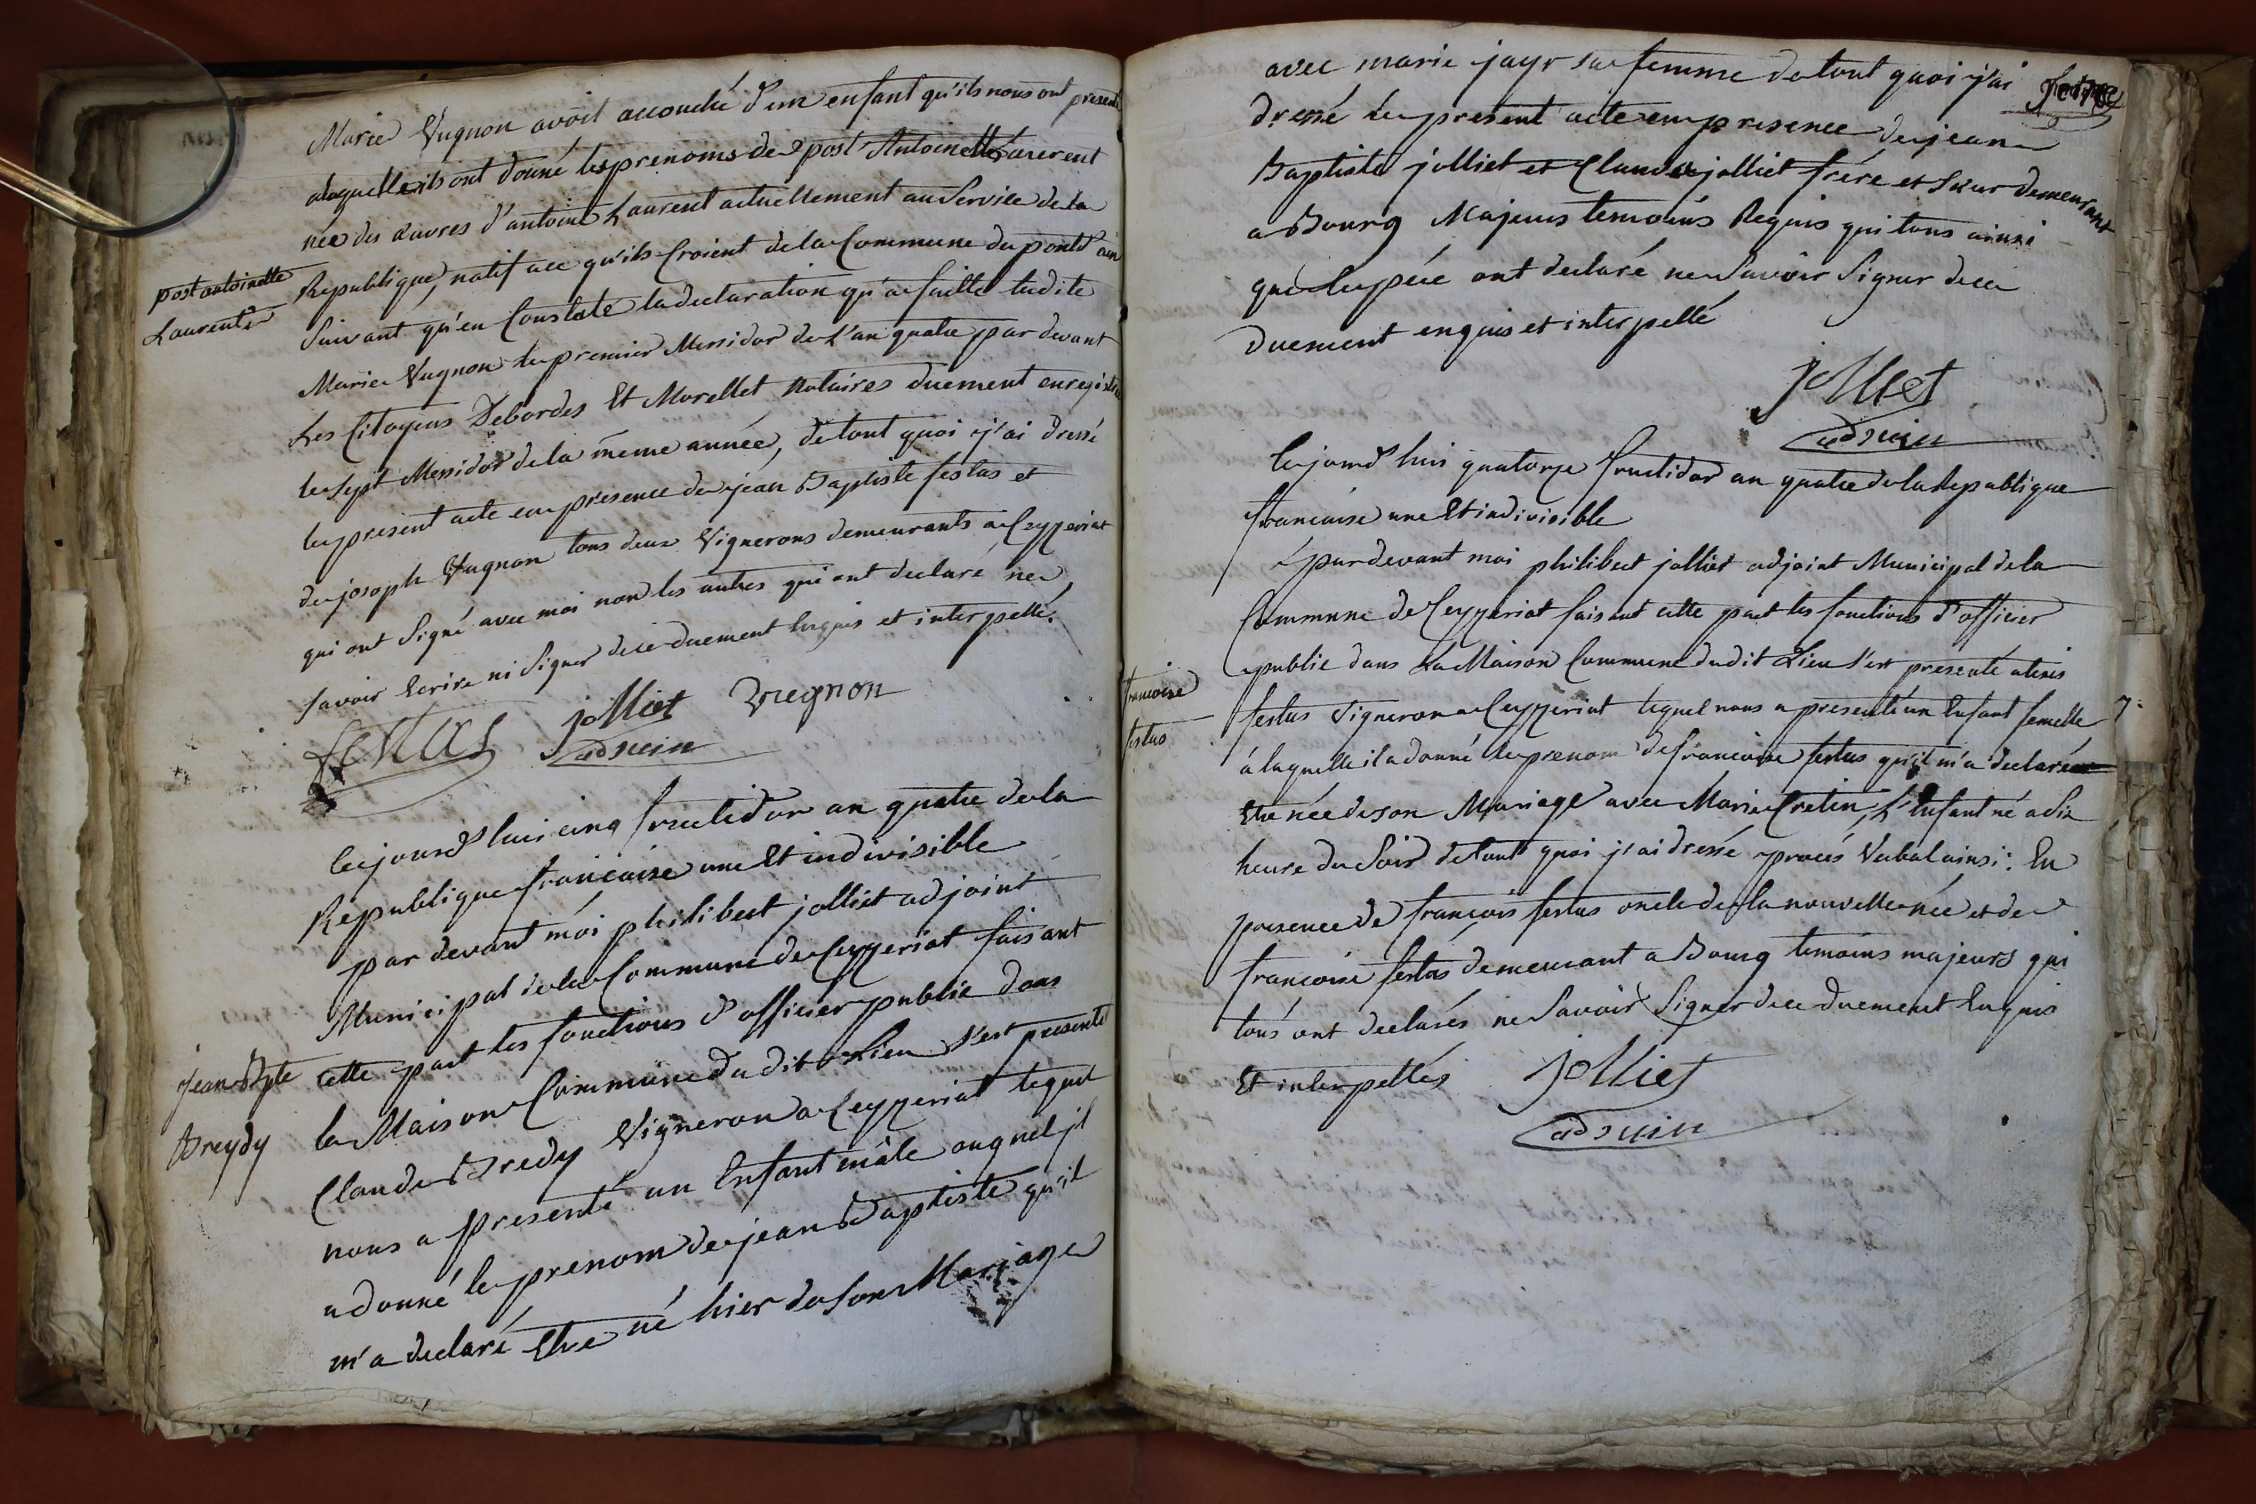 Marie Vugnon avoit accouché d'un enfant qu'ils nous ont presenté
alaquelle ils ont donné les prenoms de post Antoinette Laurent
née des œuvres d'antoine Laurent actuellement au Service de la
post antoinette
Laurent
Republique, natif a ce qu'ils Croient de la Commune du pont d'ain
Suivant qu'en Constate la declaration qu'a faitte ladite
Marie Vugnon le premier Messidor de L'an quatre par devant
Les Citoyens Debordes Et Morellet Notaires duement enregistré
le Sept Messidor de la même année, de tout quoi j'ai dressé
le present acte en presence de jean Baptiste festas et
de joseph Vugnon tous deux Vignerons demeurants a Ceyzeriat
qui ont Signé avec moi non les autres qui ont declaré ne
savoir Ecrire ni Signer de ce duement Enquis et interpellé.
festas jolliet Vugnon
adjoin
Cejourd'huis cinq fructidor an quatre de la
Republique française une Et indivisible
par devant moi philibert jolliet adjoint
Municipal de la Commune de Ceyzeriat faisant
cette part les fonctions d'officier public dans
jean Bpte
Breydy
la Maison Commune du dit Lieu s'est presenté
Claude Bredy Vigneron a Ceyzeriat lequel
nous a presenté un Enfant mâle auquel jl
a donné le prenom de jean Baptiste qu'il
m'a declaré Etre né hier de son Mariage
avec marie jayr sa femme de tout quoi j'ai
dressé le present acte en presence de jean
Baptiste jolliet et Claude jolliet frére et sœur demeurant
a Bourg Majeurs temoins Requis qui tous ainsi
que le pére ont declaré ne Savoir Signer de ce
duement enquis et interpellé
jolliet
adjoin
Cejourd'hui quatorze fructidor an quatre de la Republique
francaise une Et indivisible
par devant moi philibert jolliet adjoint Municipal de la
Commune de Ceyzeriat faisant cette part les fonctions d'officier
public dans La Maison Commune dudit Lieu s'est presenté alexis
francoise
festas
festas Vigneron a Ceyzeriat lequel nous a presenté un Enfant femelle
á laquelle il a donné le prenom de francoise festas qu'il m'a declaré
Etre née de son Mariage avec Marie Cretin, L'Enfant né a dix
heure du Soir de tout quoi j'ai dressé procés Verbal ainsi: En
presence de françois festas oncle de la nouvelle née et de
francoise festas demeurant a Bourg temoins majeurs qui
tous ont declarés ne Savoir Signer de ce duement Enquis
Et interpellés
jolliet
adjoin